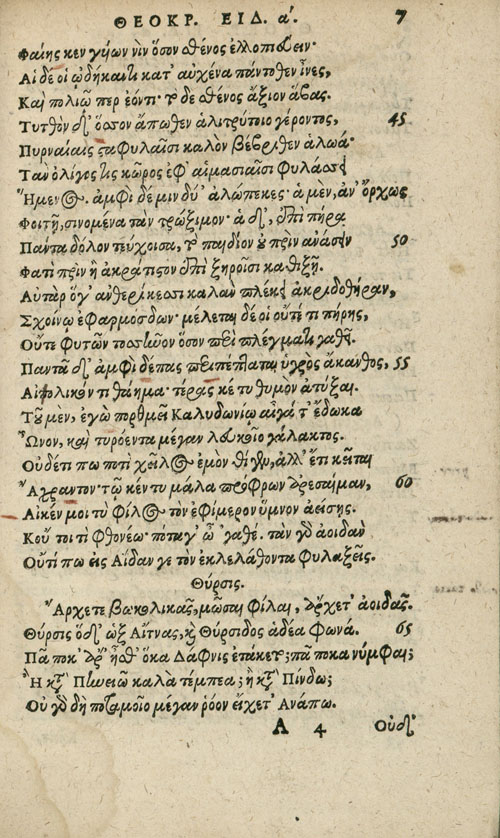 ΘΕΟΚΡ. ΕΙΔ. α΄. 7
Φαίης κεν γυίων νὶν ὅσον σθένος ἐλλοπιεύειν·
Αἱ δέ οἱ ᾠδήκαντι κατ᾽ αὐχένα πάντοθεν ἶνες,
Καὶ πολιῷ περ ἐόντι· τὸ δὲ σθένος ἄξιον ἅβας.
Τυτθὸν δ᾽ ὅσσον ἄπωθεν ἁλιτρύτοιο γέροντος, 45
Πυρναίαις σταφυλαῖσι καλὸν βέβριθεν ἀλωά·
Τὰν ὀλίγος τις κῶρος ἐφ᾽ αἱμασιαῖσι φυλάσσει
Ἥμενος. ἀμφὶ δέ μιν δύ᾽ ἀλώπεκες· ἁ μὲν, ἀν᾽ ὄρχως
Φοιτῇ, σινομένα τὰν τρώξιμον· ἁ δ᾽, ἐπὶ πήρᾳ
Πάντα δόλον τεύχοισα, τὸ παιδίον οὐ πρὶν ἀνάσειν 50
Φατὶ πρὶν ἢ ἀκράτιστον ἐπὶ ξηροῖσι καθίξῃ.
Αὐτὰρ ὅγ᾽ ἀνθερίκεσσι καλὰν πλέκει ἀκριδοθήραν,
Σχοίνῳ ἐφαρμόσδων· μέλεται δέ οἱ οὔτέ τι πήρης,
Οὔτε φυτῶν τοσσῆνον ὅσον περὶ πλέγματι γαθεῖ.
Παντᾶ δ᾽ ἀμφὶ δέπας περιπέπταται ὑγρὸς ἄκανθος, 55
Αἰπολικόν τι θάημα· τέρας κέ τυ θυμὸν ἀτύξαι.
Τῶ μὲν, ἐγὼ πορθμεῖ Καλυδωνίῳ αἶγά τ᾽ ἔδωκα
Ὦνον, καὶ τυρόεντα μέγαν λευκοῖο γάλακτος.
Οὐδέτί πω ποτὶ χεῖλος ἐμὸν θίγεν, ἀλλ᾽ ἔτι κεῖται
Ἄχραντον· τῷ κέν τυ μάλα πρόφρων ἀρεσαίμαν, 60
Αἰκέν μοι τὺ φίλος τὸν ἐφίμερον ὕμνον ἀείσῃς.
Κοὔ τοι τὶ φθονέω· πόταγ᾽ ὦ ᾽γαθέ. τὰν γὰρ ἀοιδὰν
Οὔτί πω εἰς Ἀΐδαν γε τὸν ἐκλελάθοντα φυλαξεῖς.
Θύρσις.
Ἄρχετε βωκολικᾶς, μῶσαι φίλαι, ἄρχετ᾽ ἀοιδᾶς.
Θύρσις ὅδ᾽ ὡξ Αἴτνας, καὶ Θύρσιδος ἁδέα φωνά. 65
Πᾶ ποκ᾽ ἄρ᾽ ἦθ᾽ ὅκα Δάφνις ἐτάκετο; πᾶ ποκα νύμφαι;
Ἢ κατὰ Πηνειῶ καλὰ τέμπεα; ἢ κατὰ Πίνδω;
Οὐ γὰρ δὴ ποταμοῖο μέγαν ῥόον εἴχετ᾽ Ἀνάπω.
A 4 Οὐδ᾽